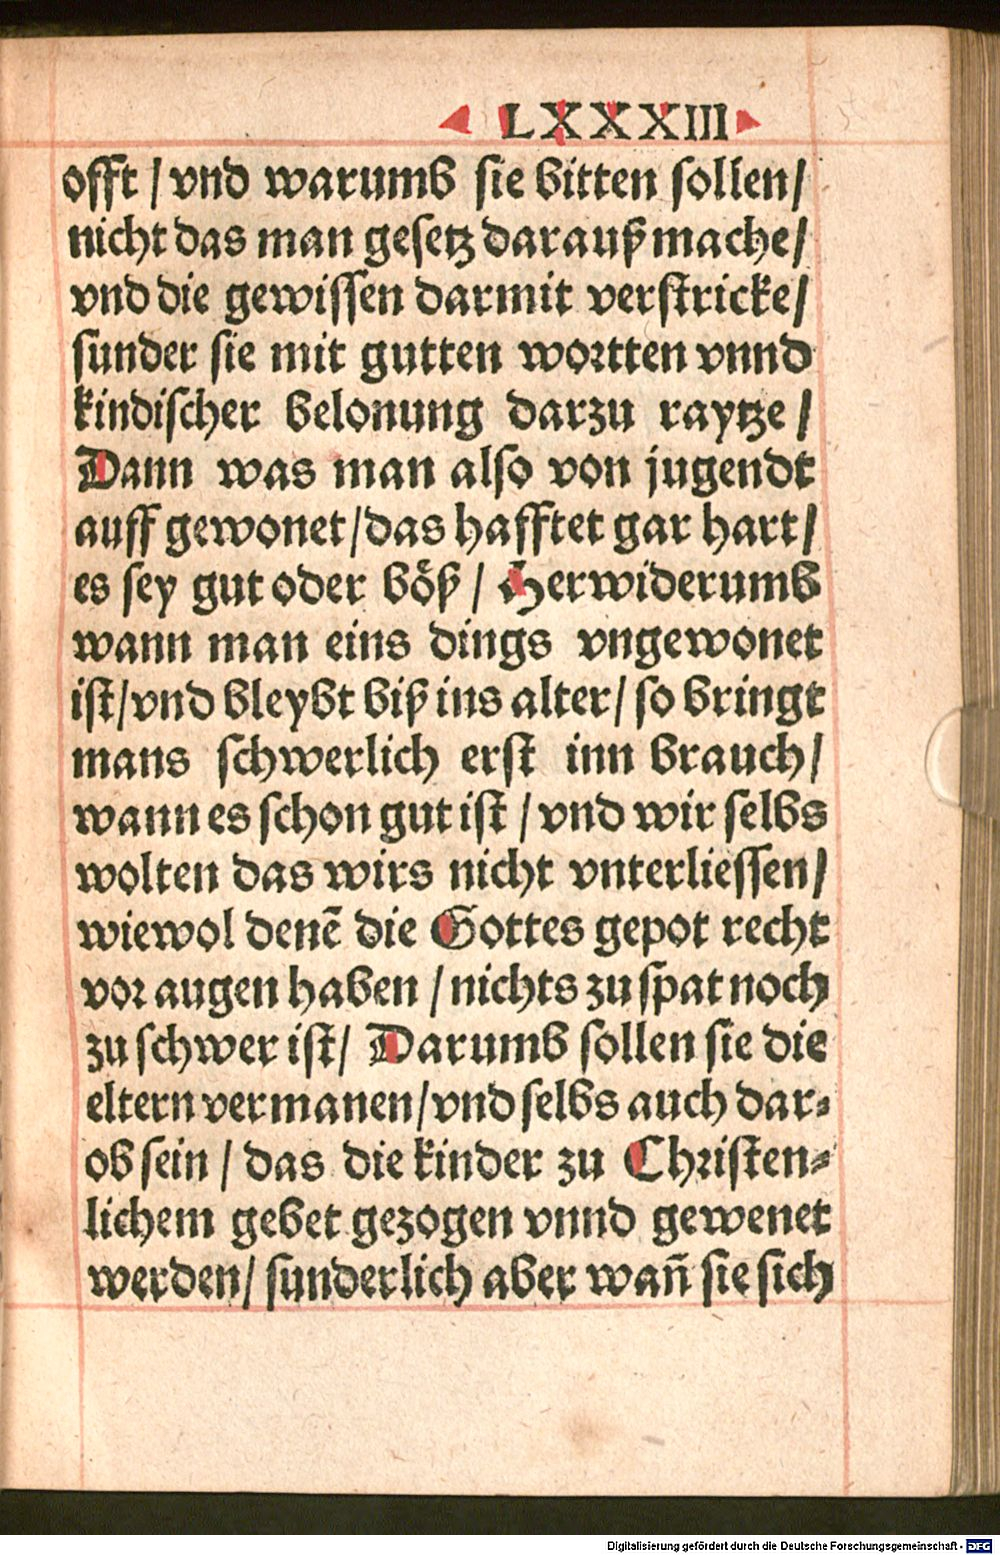 LXXXIII
offt / vnd warumb sie bitten sollen /
nicht das man gesetz darauß mache /
vnd die gewissen darmit verstricke /
sunder sie mit gutten wortten vnnd
kindischer belonung darzu raytze /
Dann was man also von jugendt
auff gewonet / das hafftet gar hart /
es sey gut oder böß / Herwiderumb
wann man eins dings vngewonet
ist / vnd bleybt biß ins alter / so bringt
mans schwerlich erst inn brauch /
wann es schon gut ist / vnd wir selbs
wolten das wirs nicht vnterliessen /
wiewol denē die Gottes gepot recht
vor augen haben / nichts zu spat noch
zu schwer ist / Darumb sollen sie die
eltern vermanen / vnd selbs auch dar⸗
ob sein / das die kinder zu Christen⸗
lichem gebet gezogen vnnd gewenet
werden / sunderlich aber wañ sie sich
Digitalisierung gefördert durch die Deutsche Forschungsgemeinschaft - DFG